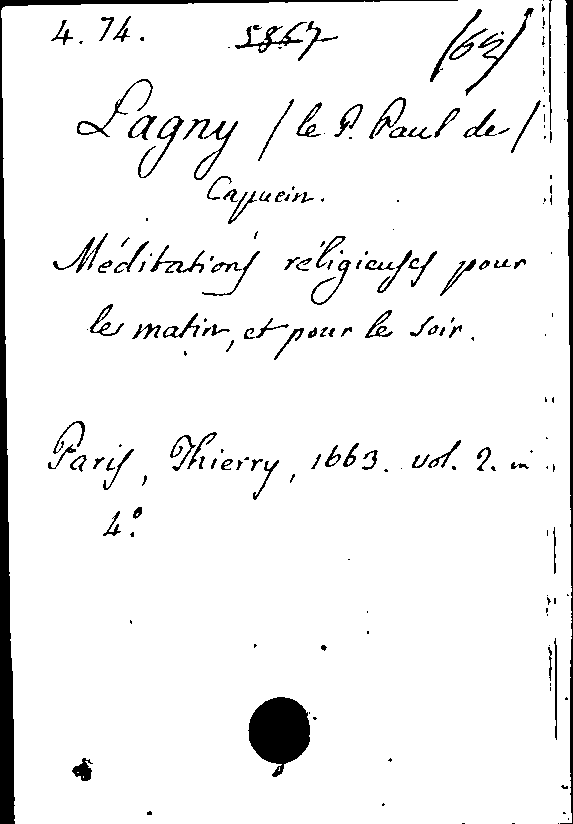 4. 74. 5867 (62)
Lagny / le P. Paul de /
Capucin.
Méditations réligieuses pour
le matin, et pour le soir.
Paris, Thierry, 1663. vol. 2. in
4.°